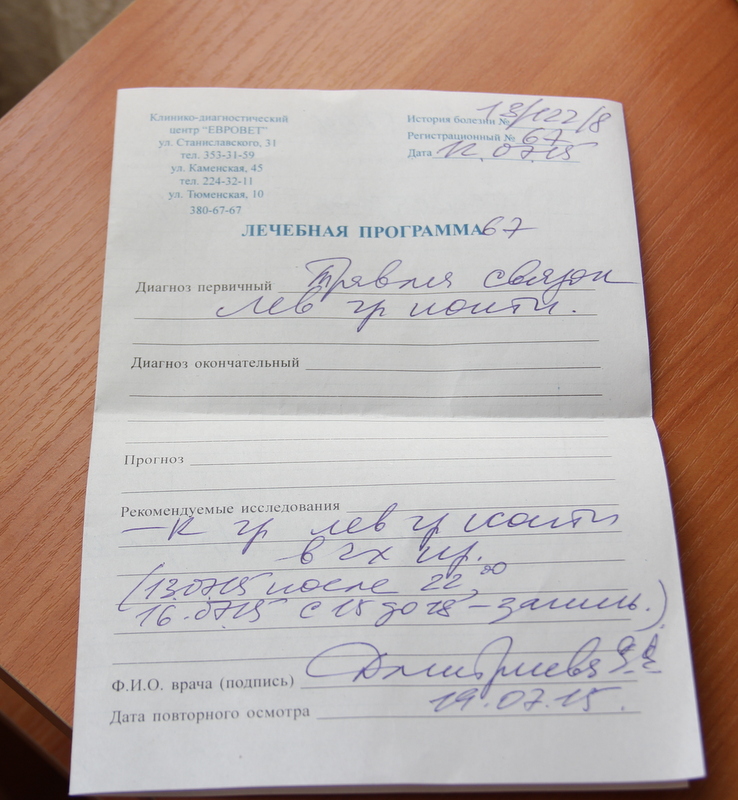 Клинико-диагностический
центр "ЕВРОВЕТ"
ул. Станиславского, 31
тел. 353-31-59
ул. Каменская, 45
тел. 224-32-11
ул. Тюменская, 10
380-67-67
История болезни № 13/122/8
Регистрационный № 67
Дата 12.07.15
ЛЕЧЕБНАЯ ПРОГРАММА 67
Диагноз первичный Травма связок
лев гр кости.
Диагноз окончательный
Прогноз
Рекомендуемые исследования
гр лев гр кости
в 2х пр.
(13.07.15 после 22,00
16.07.15 с 15 до 18 -
Ф.И.О. врача (подпись) Дмитриева
19.07.15.
Дата повторного осмотра